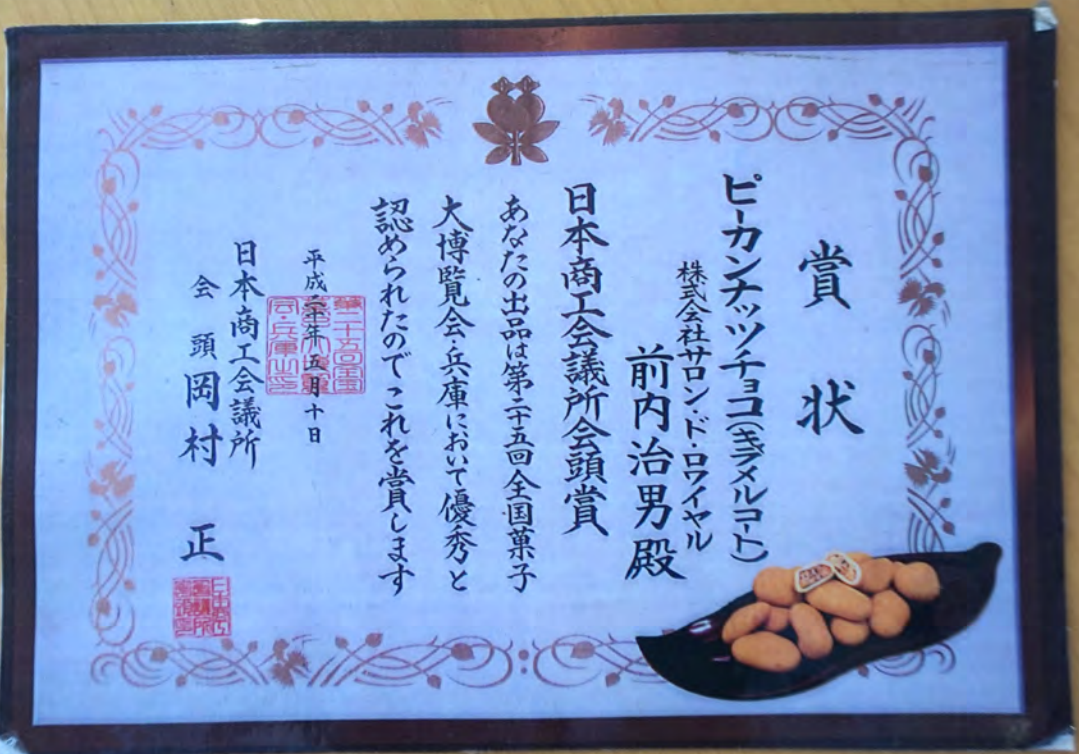 賞状
ピーカンナッツチョコ(キャラメルコート)
株式会社サロン・ド・ロワイヤル
前内治男殿
日本商工会議所会頭賞
あなたの出品は第二十五回全国菓子
大博覧会・兵庫において優秀と
認められたのでこれを賞します
平成二十年五月十日
第二十五回全国
菓子大博覧
会・兵庫之印
日本商工会議所
会頭岡村正
日本商工
会議所
会頭之印